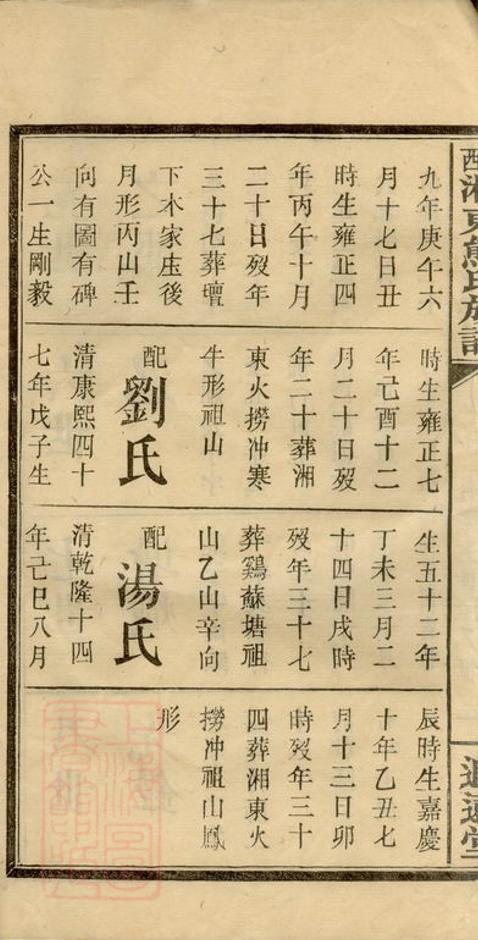 九年庚午六
月十七日丑
時生雍正四
年丙午十月
二十日歿年
三十七葬壇
下木家庄後
月形丙山壬
向有圖有碑
公一生剛毅
時生雍正七
年己酉十二
月二十日歿
年二十葬湘
東火撈冲寒
牛形祖山
配劉氏
清康熙四十
七年戊子生
生五十二年
丁未三月二
十四日戌時
歿年三十七
葬鷄蘇塘祖
山乙山辛向
配湯氏
清乾隆十四
年己巳八月
辰時生嘉慶
十年乙丑七
月十三日卯
時歿年三十
四葬湘東火
撈冲祖山鳳
形
湘東熊氏族譜
遠堂